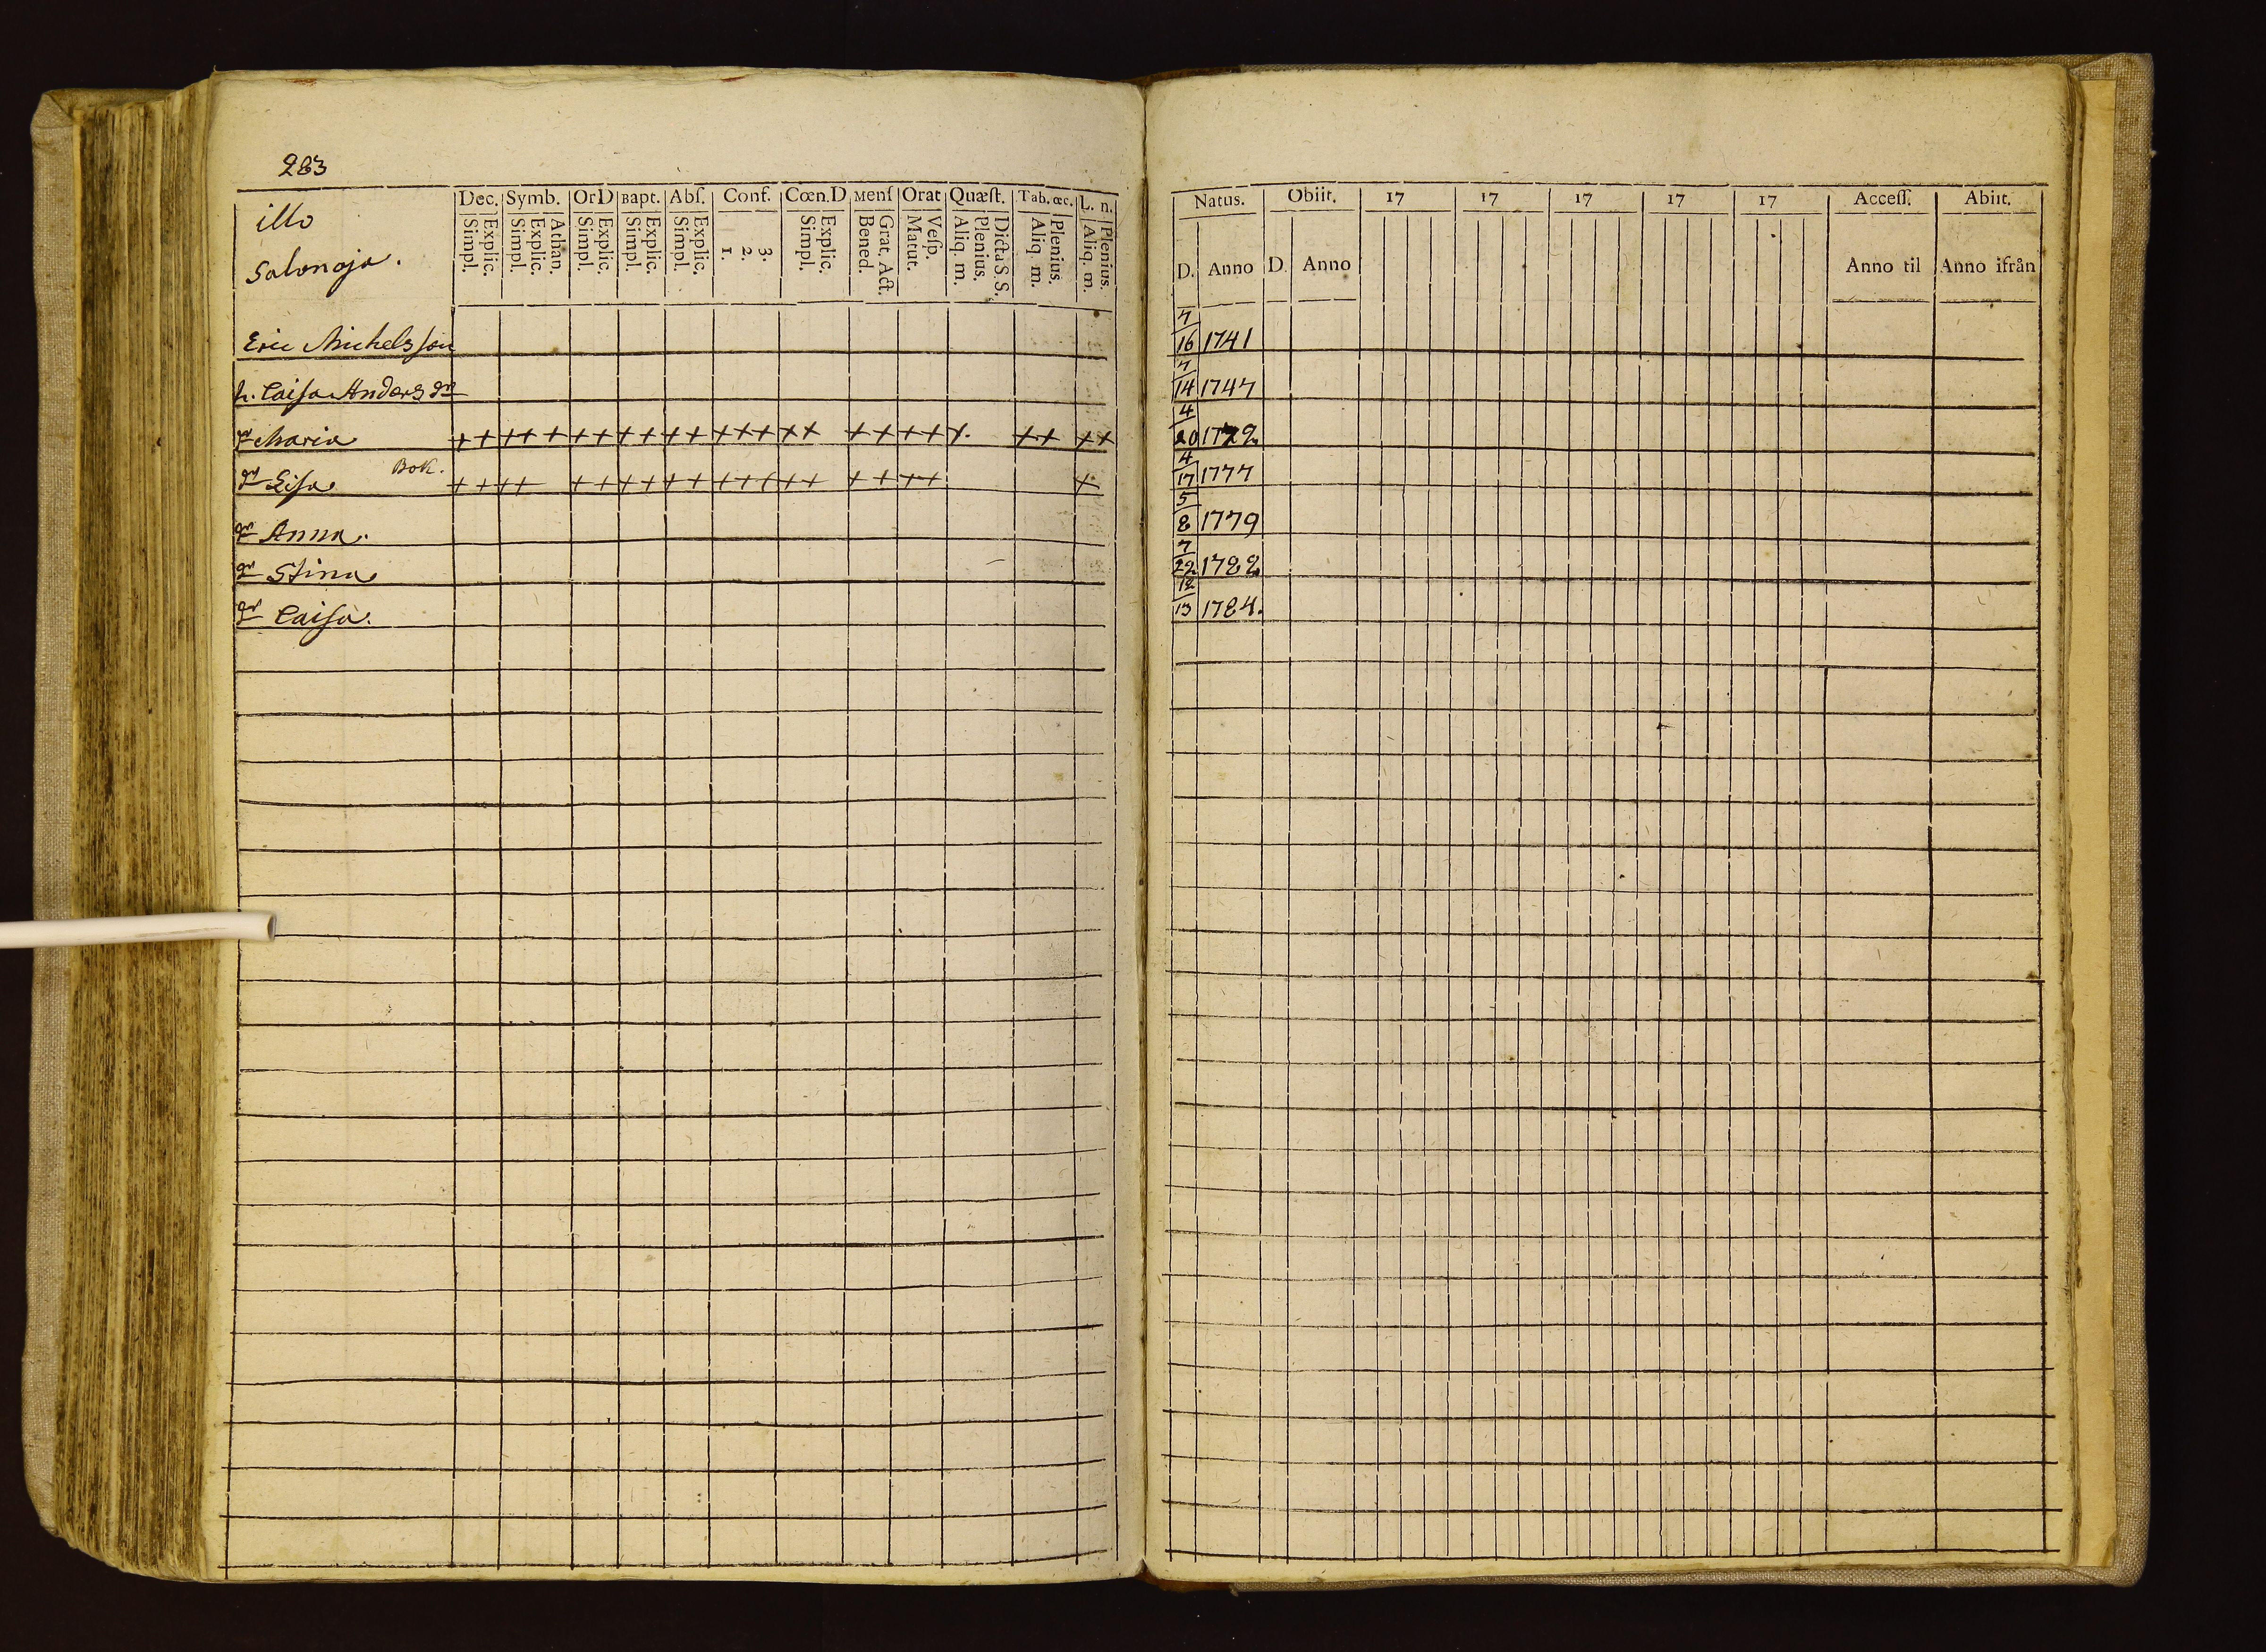 283
illo
Salonoja.
Dec. Symb. OrD Bapt. Abſ. Conf. Cœn.D Menſ Orat Quæſt. Tab. œc. L. n.
Simpl. Explic. Simpl. Explic. Athan. Simpl. Explic. Simpl. Explic. Simpl. Explic. 1. 2. 3. Simpl. Explic. Bened. Grat. Act. Matut. Veſp. Aliq. m. Plenius. Dicta S. S. Aliq. m. Plenius. Aliq. m. Plenius.
Eric Michelsſon
h. Caiſa Andersdr
dr Maria ++ +++ ++ ++ ++ +++ ++ ++ ++ +. ++ ++
dr Liſa Bok. ++ ++ ++ ++ ++ +++ ++ ++ ++ +
dr Anna.
dr Stina
dr Caiſa.
Natus. Obiit. 17 17 17 17 17 Acceſſ. Abiit.
D. Anno D. Anno Anno til Anno ifrån
7/16 1741
7/14 1747
4/20 1772
4/17 1777
5/8 1779
7/22 1782
12/13 1784.